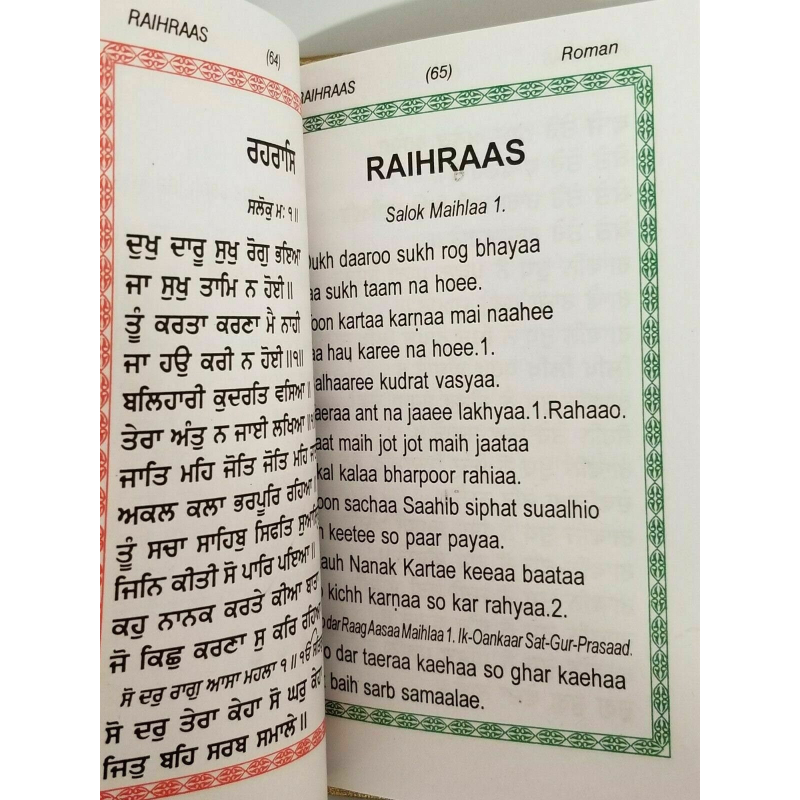 RAIHRAAS
(64)
ਰਹਰਾਸਿ
ਸਲੋਕੁ ਮ: ੧॥
ਦੁਖੁ ਦਾਰੂ ਸੁਖੁ ਰੋਗੁ ਭਇਆ
ਜਾ ਸੁਖੁ ਤਾਮਿ ਨ ਹੋਈ॥
ਤੂੰ ਕਰਤਾ ਕਰਣਾ ਮੈ ਨਾਹੀ
ਜਾ ਹਉ ਕਰੀ ਨ ਹੋਈ॥੧॥
ਬਲਿਹਾਰੀ ਕੁਦਰਤਿ ਵਸਿਆ
ਤੇਰਾ ਅੰਤੁ ਨ ਜਾਈ ਲਖਿਆ
ਜਾਤਿ ਮਹਿ ਜੋਤਿ ਜੋਤਿ ਮਹਿ
ਅਕਲ ਕਲਾ ਭਰਪੂਰਿ ਰਹਿਆ
ਤੂੰ ਸਚਾ ਸਾਹਿਬੁ ਸਿਫਤਿ
ਜਿਨਿ ਕੀਤੀ ਸੋ ਪਾਰਿ ਪਇਆ॥
ਕਹੁ ਨਾਨਕ ਕਰਤੇ ਕੀਆ ਬਾਤਾ
ਜੋ ਕਿਛੁ ਕਰਣਾ ਸੁ ਕਰਿ ਰਹਿਆ
ਸੋ ਦਰੁ ਰਾਗੁ ਆਸਾ ਮਹਲਾ ੧॥
ਸੋ ਦਰੁ ਤੇਰਾ ਕੇਹਾ ਸੋ ਘਰੁ ਕੇਹਾ
ਜਿਤੁ ਬਹਿ ਸਰਬ ਸਮਾਲੇ॥
RAIHRAAS
(65)
Roman
RAIHRAAS
Salok Maihlaa 1.
Dukh daaroo sukh rog bhayaa
aa sukh taam na hoee.
oon kartaa karṇaa mai naahee
aa hau karee na hoee.1.
alhaaree kudrat vasyaa.
aeraa ant na jaaee lakhyaa.1.Rahaao.
aat maih jot jot maih jaataa
kal kalaa bharpoor rahiaa.
oon sachaa Saahib siphat suaalhio
keetee so paar payaa.
auh Nanak Kartae keeaa baataa
kichh karṇaa so kar rahyaa.2.
dar Raag Aasaa Maihlaa 1. Ik-Oankaar Sat-Gur-Prasaad.
o dar taeraa kaehaa so ghar kaehaa
baih sarb samaalae.